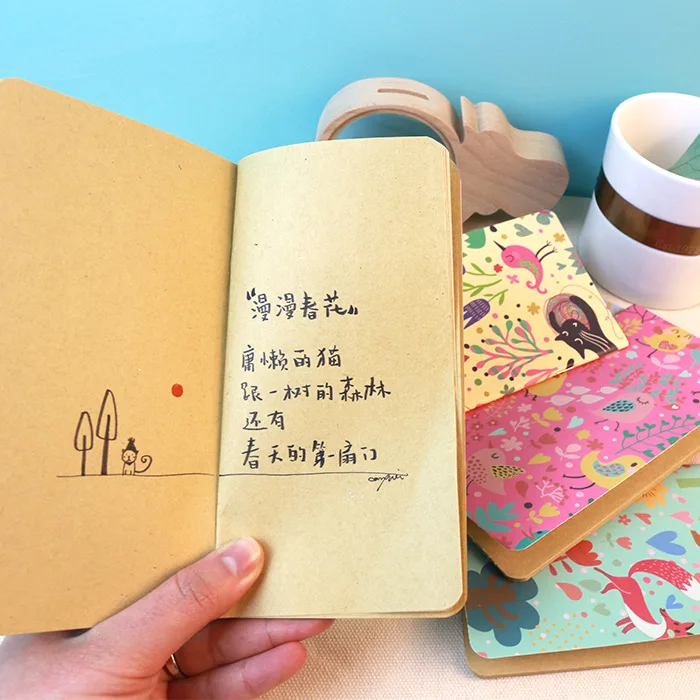 “漫漫春花”
庸懒的猫
跟一树的森林
还有
春天的第一扇门